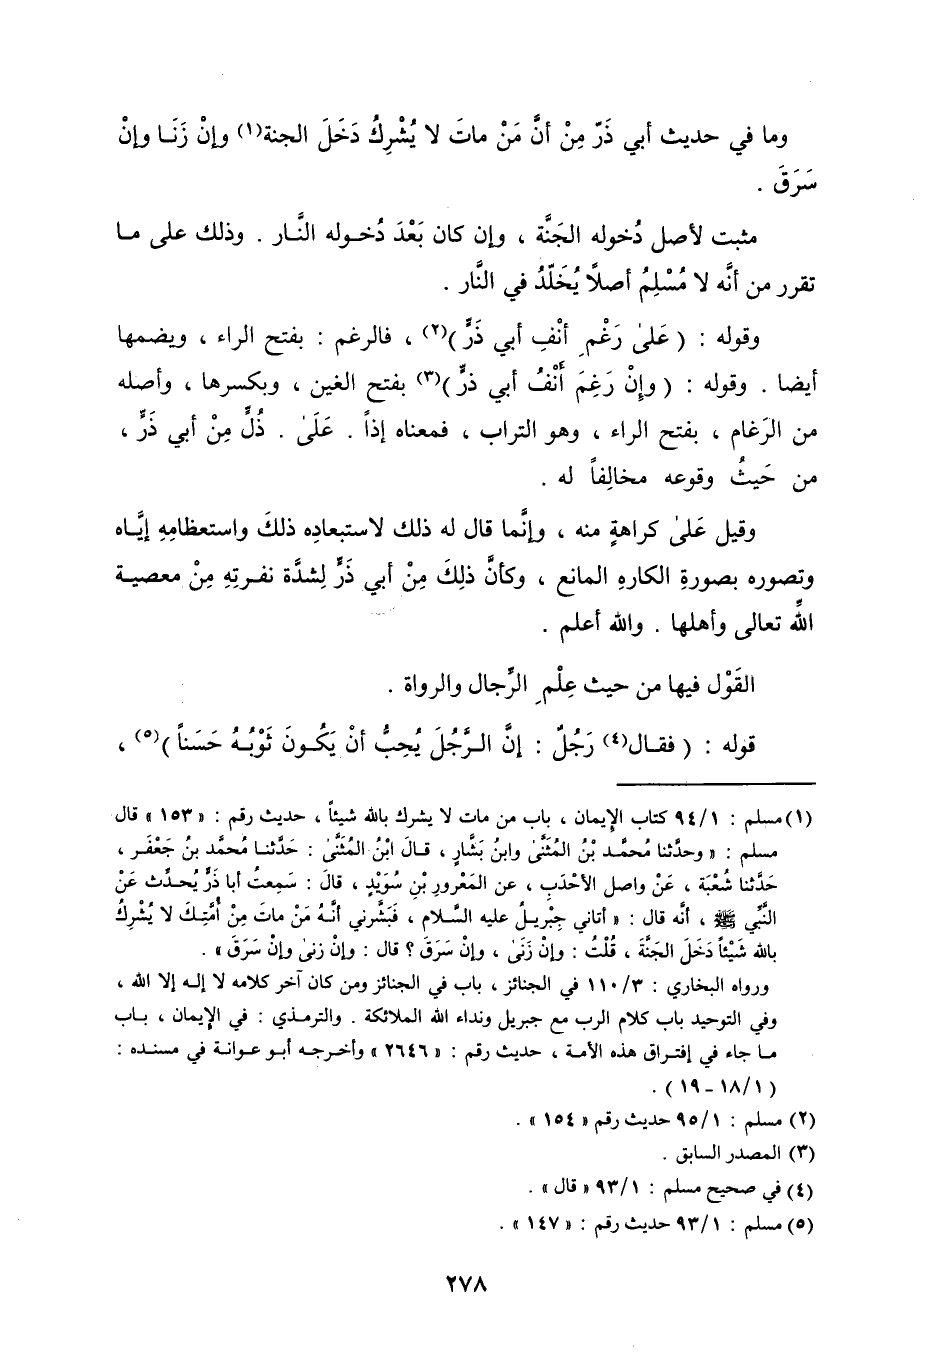 وما في حديث أبي ذَرّ مِنْ أنَّ مَنْ ماتَ لا يُشْرِكُ دَخَلَ الجنة(١) وإنْ زَنَـا وإنْ
سَرَقَ .
مثبت لأصل دُخوله الجَنَّة ، وإن كان بَعْدَ دُخـوله النَّـار . وذلك على مـا
تقرر من أنَّه لا مُسْلِمُ أصلاً يُخَلّدُ في النَّار .
وقوله : ( عَلىٰ رَغْمِ أنْفِ أبي ذَرٍّ )(٢) ، فالرغم : بفتح الراء ، وبضمها
أيضا . وقوله : ( وإنْ رَغِمَ أَنْفُ أبي ذرٍّ )(٣) بفتح الغين ، وبكسرها ، وأصله
من الرَغام ، بفتح الراء ، وهو التراب ، فمعناه إذاً . عَلَىٰ . ذُلٍّ مِنْ أبي ذَرٍّ ،
من حَيثُ وقوعه مخالِفاً له .
وقيل عَلىٰ كراهةٍ منه ، وإنَّما قال له ذلك لاستبعادِه ذلكَ واستعظامِهِ إيَّـاه
وتصوره بصورةِ الكارهِ المانع ، وكأنَّ ذلِكَ مِنْ أبي ذَرٍّ لِشدَّة نفـرتِهِ مِنْ معصيـة
اللَّهِ تعالى وأهلها . والله أعلم .
القَوْل فيها من حيث عِلْمِ الرِّجال والرواة .
قوله : ( فقـال(٤) رَجُلٌ : إنَّ الـرَّجُلَ يُحِبُّ أنْ يَكُـونَ ثَوْبُـهُ حَسَناً )(٥) ،
(١) مسلم : ٩٤/١ كتاب الإيمان ، باب من مات لا يشرك بالله شيئاً ، حديث رقم : « ١٥٣ » قال
مسلم : « وحدَّثنا مُحمَّـد بْنُ المُثنَّىٰ وابنُ بَشَّارٍ ، قـالَ ابْنُ المُثَنَّىٰ : حَدَّثنـا مُحمَّد بنُ جَعْفَـر ،
حَدَّثنا شُعْبَة ، عَنْ واصل الأحْدَبِ ، عن المَعْرورِ بْنِ سُوَيْدٍ ، قالَ : سَمِعتُ أبا ذَرٍّ يُحـدِّث عَنْ
النَّبِّي ﷺ ، أنَّه قال : « أتاني جِبْريلُ عليه السَّـلام ، فَبَشَّرني أنَّـهُ مَنْ ماتَ مِنْ أُمَّتِـكَ لا يُشْرِكُ
بالله شَيْئاً دَخَلَ الجَنَّةَ ، قُلْتُ : وإنْ زَنَىٰ ، وإنْ سَرَقَ ؟ قال : وإنْ زنىٰ وإنْ سَرَقَ » .
ورواه البخاري : ١١٠/٣ في الجنائز ، باب في الجنائز ومن كان آخر كلامه لا إلـه إلا الله ،
وفي التوحيد باب كلام الرب مع جبريل ونداء الله الملائكة . والترمـذي : في الإيمان ، بـاب
مـا جاء في إفتـراق هذه الأمـة ، حديث رقم : « ٢٦٤٦ » وأخـرجـه أبـو عـوانـة في مسنـده :
( ١٨/١ - ١٩ ) .
(٢) مسلم : ٩٥/١ حديث رقم « ١٥٤ » .
(٣) المصدر السابق .
(٤) في صحيح مسلم : ٩٣/١ « قال » .
(٥) مسلم : ٩٣/١ حديث رقم : « ١٤٧ » .
٢٧٨